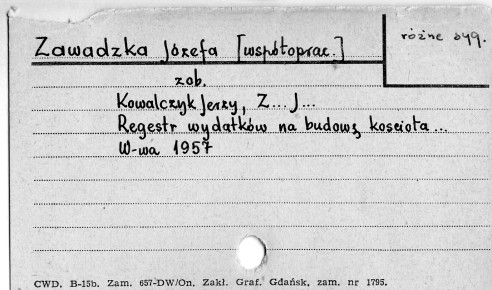 Zawadzka Józefa [współoprac.]
różne syg.
zob.
Kowalczyk Jerzy, Z... J...
Regestr wydatków na budowę kościoła...
W-wa 1957
CWD. B-15b. Zam. 657-DW/On. Zakł. Graf. Gdańsk, zam. nr 1795.